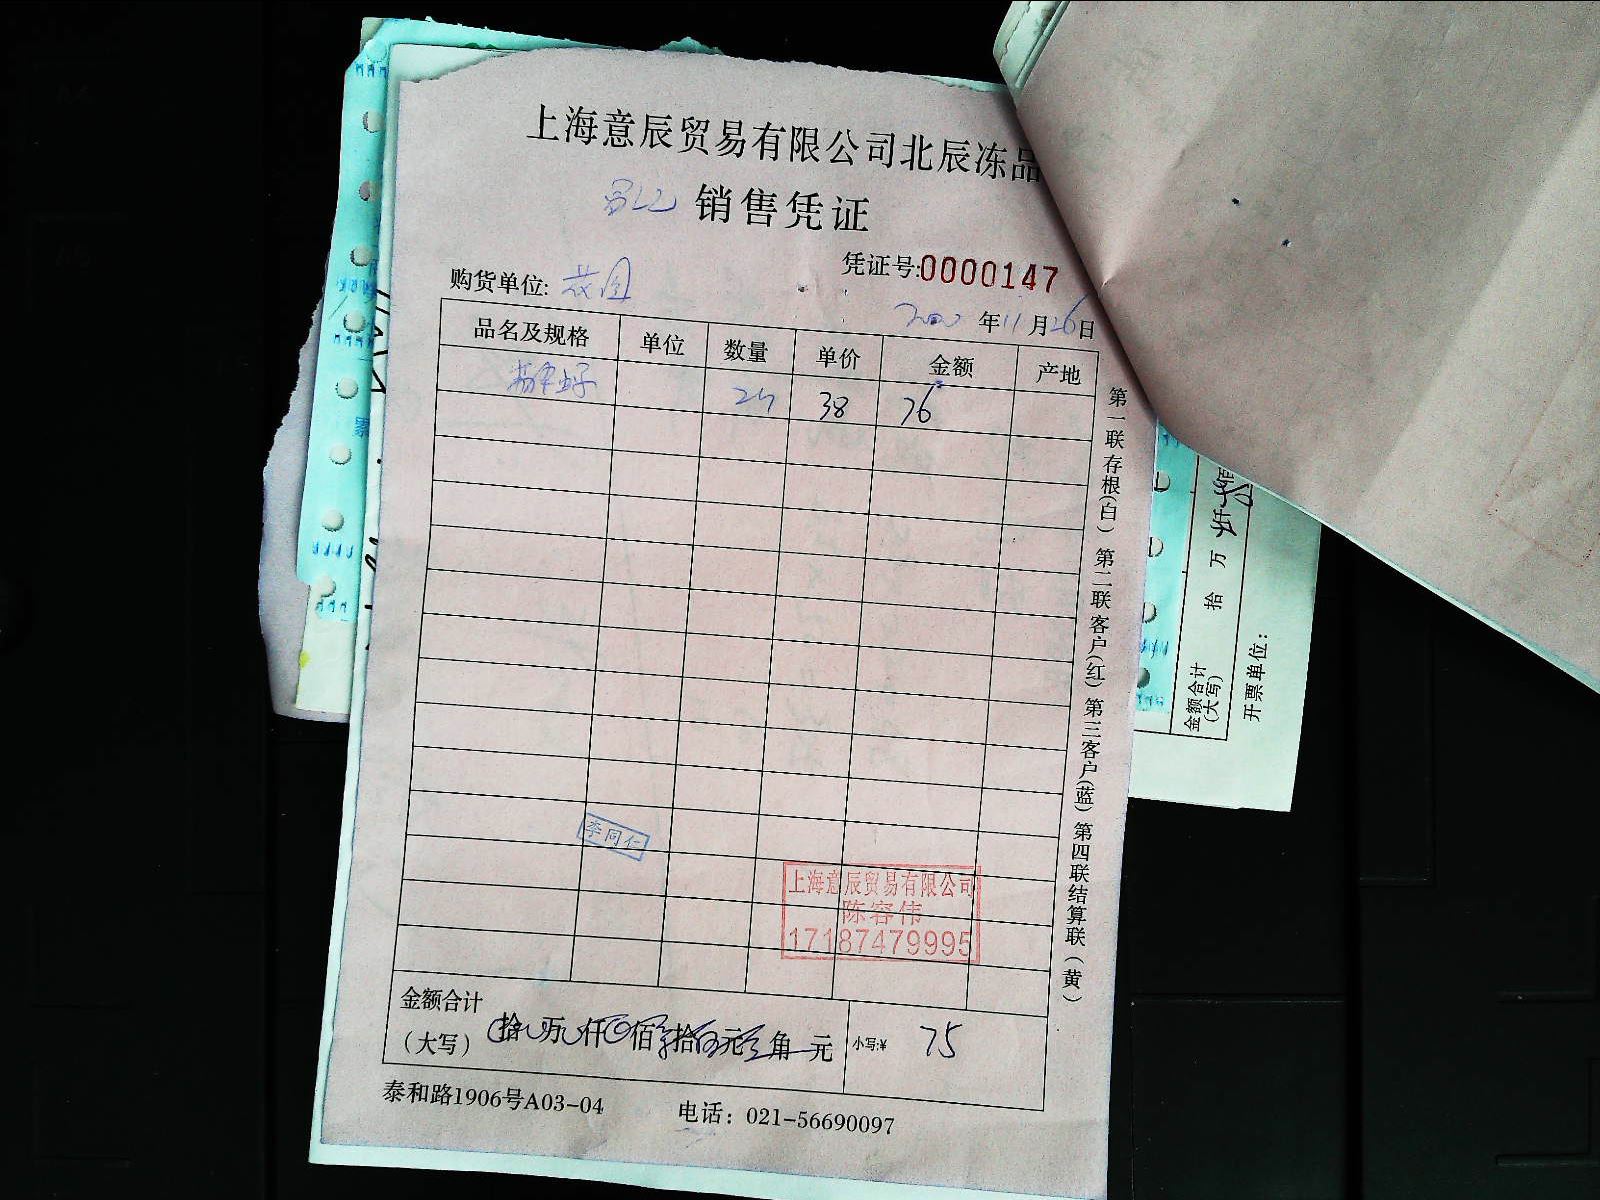 上海意辰贸易有限公司北辰冻品
销售凭证
凭证号:0000147
购货单位:
年11月26日
品名及规格 单位 数量 单价 金额 产地
38 76
第一联存根(白) 第二联客户(红) 第三客户(蓝) 第四联结算联(黄)
李同仁
上海意辰贸易有限公司
陈容伟
17187479995
金额合计
(大写) 拾 万 仟 佰 拾 元 角 元 小写:¥ 75
泰和路1906号A03-04 电话: 021-56690097
拾 万 仟
金额合计
(大写)
开票单位: